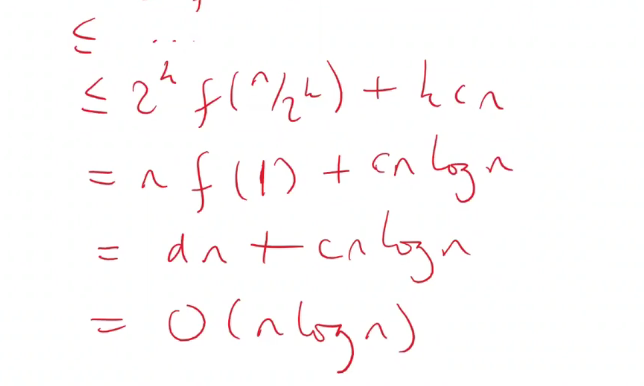 ≤ ...
≤ 2^k f(n/2^k) + k c n
= n f(1) + cn log n
= dn + cn log n
= O(n log n)